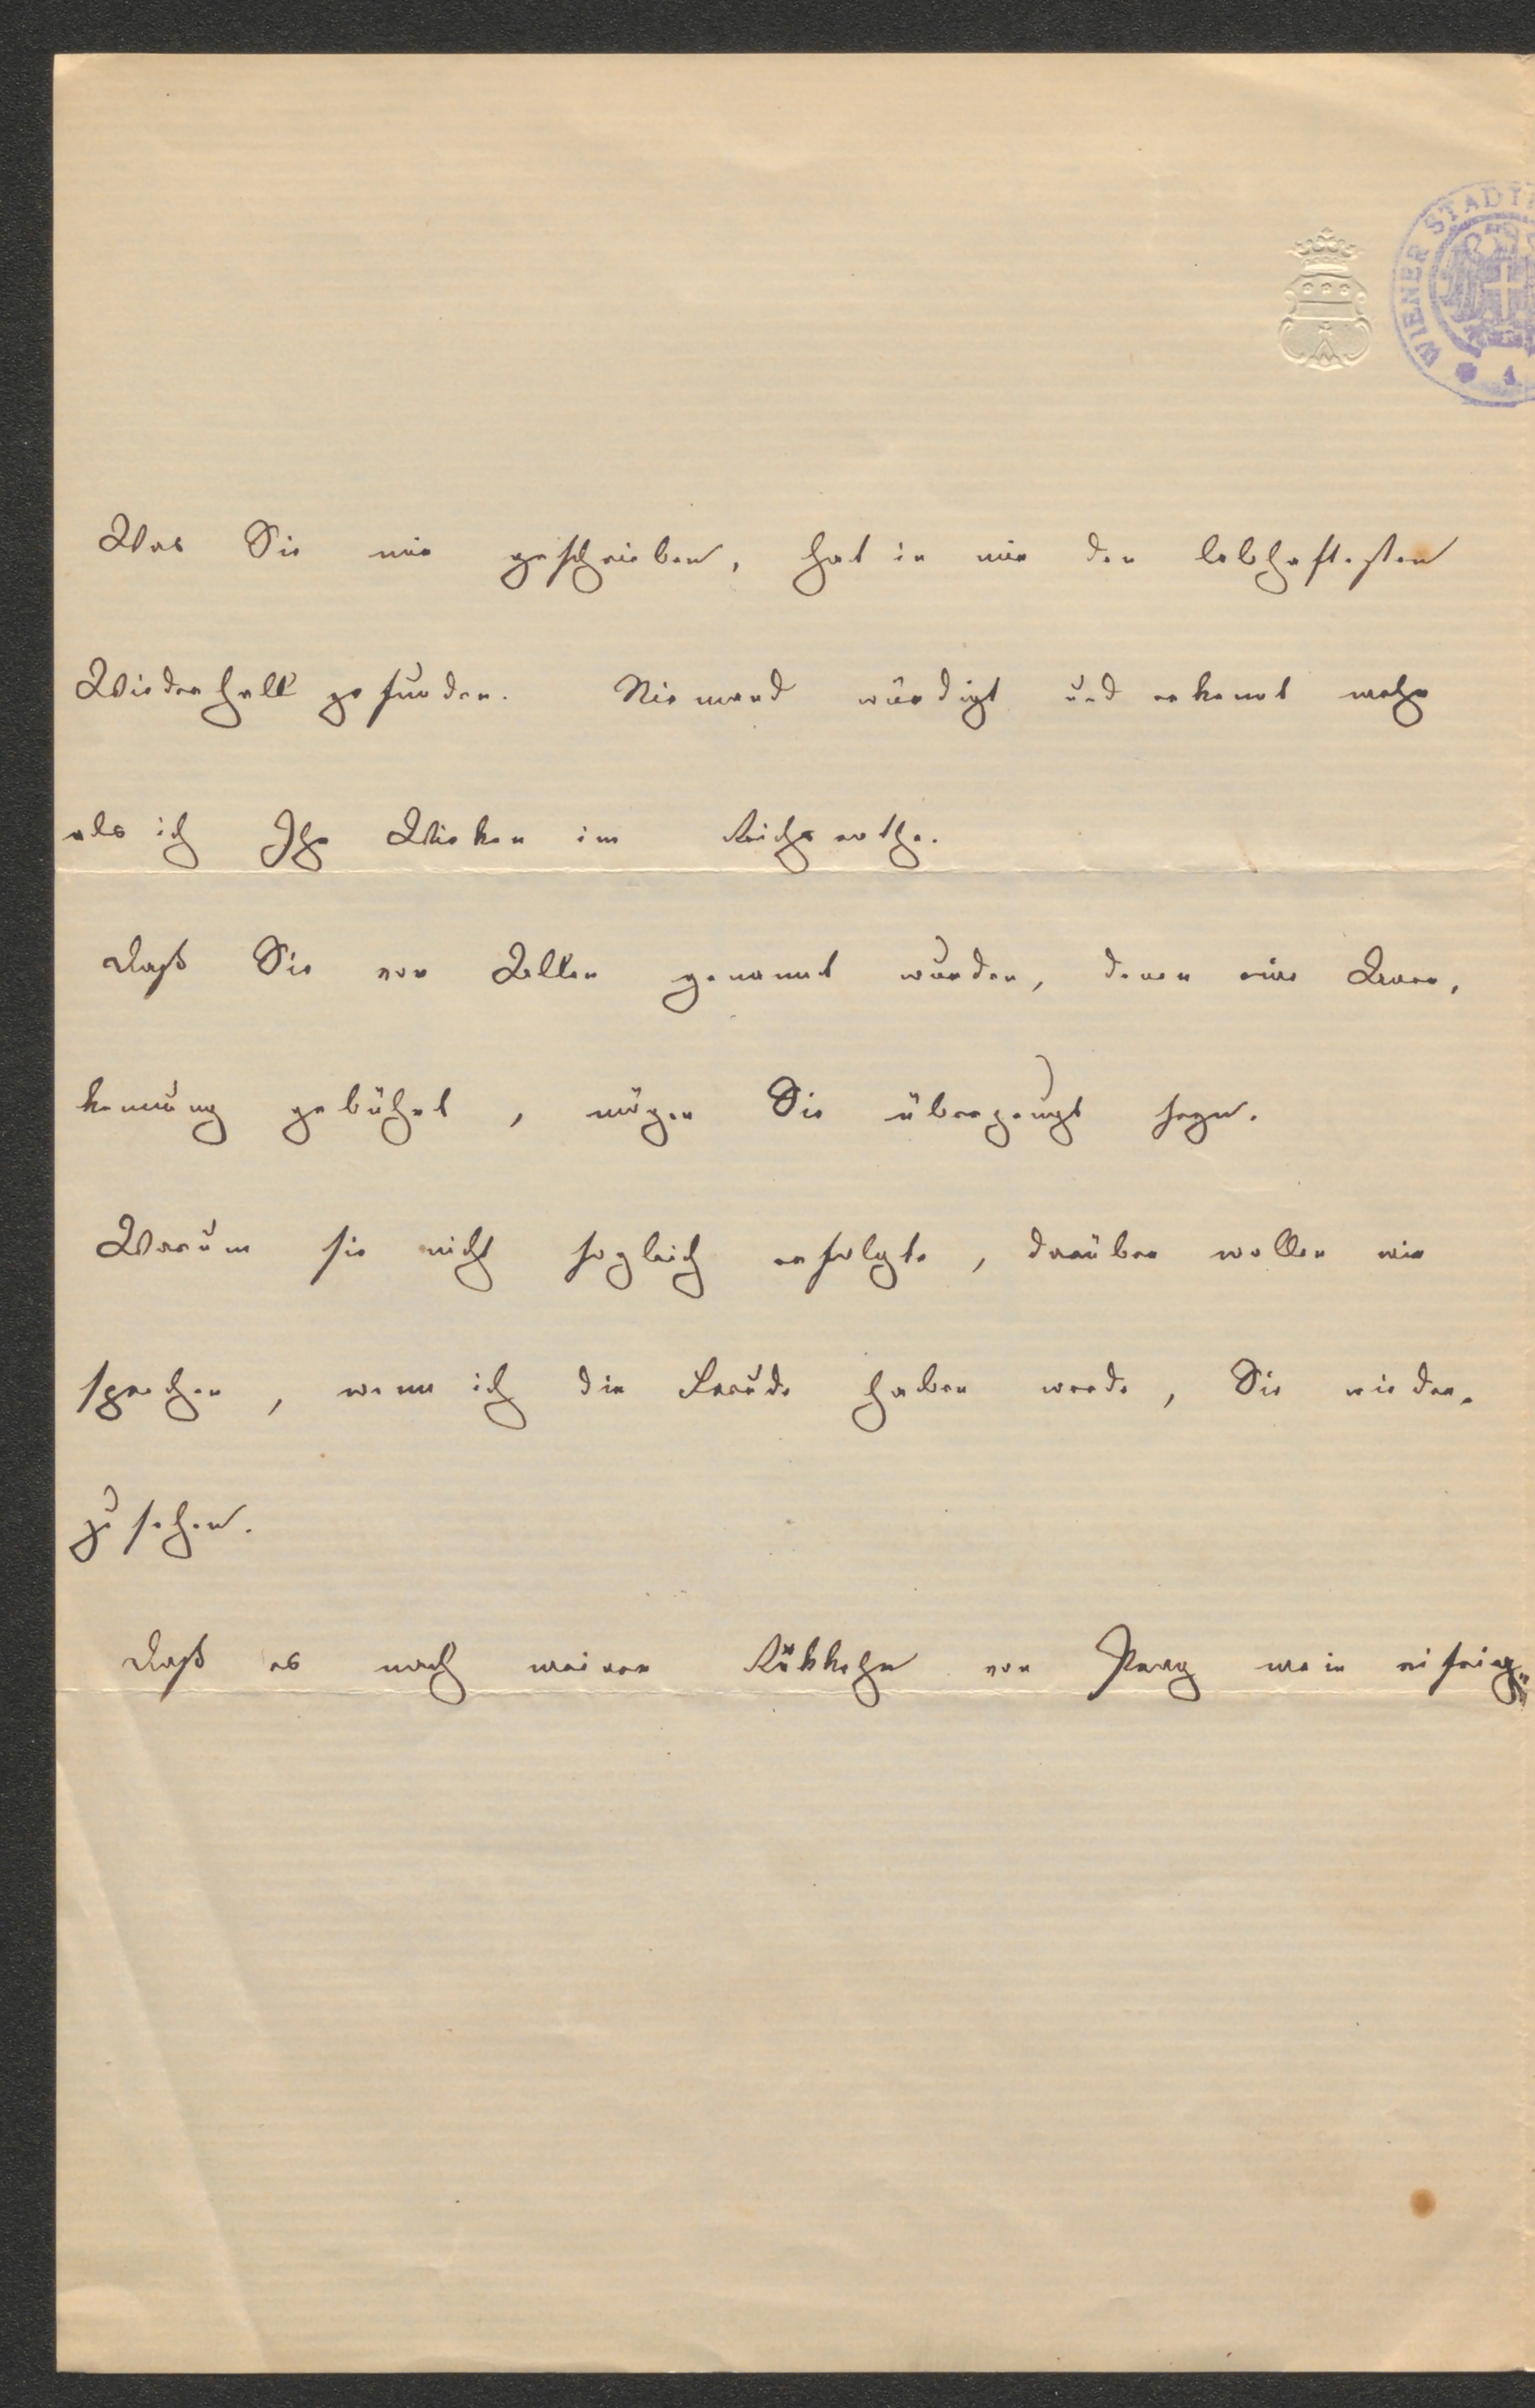 WIENER STADT
Was Sie mir geschrieben, hat in mir den lebhaftesten
Wiederhall gefunden. Niemand würdigt und erkennt mehr
als ich Ihr Wirken im Reichsrathe.
Daß Sie von Allen genannt wurden, denen eine Aner-
kennung gebührt, mögen Sie überzeugt seyn.
Warum sie nicht sogleich erfolgte, darüber wollen wir
sprechen, wenn ich die Freude haben werde, Sie wieder-
zusehen.
Daß es nach meiner Rükkehr von Prag mein eifrig-